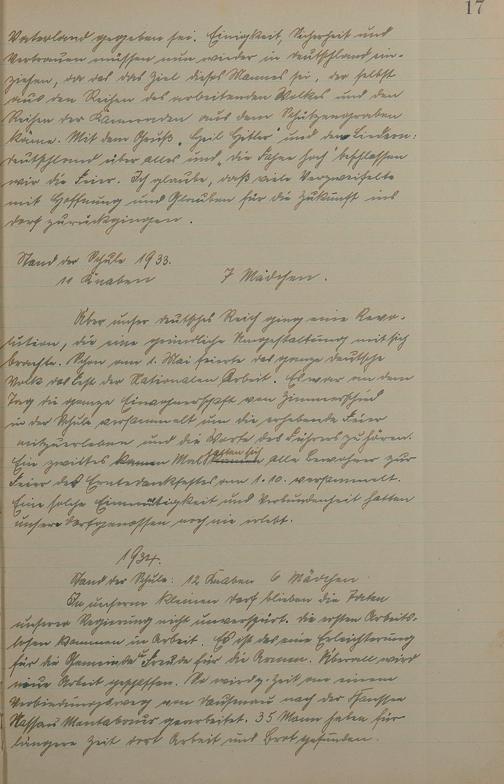 17
Vaterland gegeben sei. Einigkeit, Sicherheit und
Vertrauen müssen nun wieder in Deutschland ein-
ziehen, da das das Ziel dieses Mannes sei, der selbst
aus den Reihen des arbeitenden Volkes und den
Reihen der Kameraden aus dem Schützengraben
käme. Mit dem Gruß „Heil Hitler" und den Liedern:
Deutschland über alles und „die Fahne hoch" beschlossen
wir die Feier. Ich glaube, daß viele Verzweifelte
mit Hoffnung und Glauben für die Zukunft ins
Dorf zurückgingen.
Stand der Schule 1933.
11 Knaben 7 Mädchen.
Über unser deutsches Reich ging eine Revo-
lution, die eine gründliche Umgestaltung mit sich
brachte. Schon am 1. Mai feierte das ganze deutsche
Volk das Fest der Nationalen Arbeit. Es war an dem
Tag die ganze Einwohnerschaft von Zimmerschied
in der Schule versammelt um die erhebende Feier
mitzuerleben und die Worte des Führers zu hören.
Ein zweites Mal hatten sich alle Bewohner zur
Feier des Erntedankfestes am 1.10. versammelt.
Eine solche Einmütigkeit und Verbundenheit hatten
unsere Dorfgenossen noch nie erlebt.
1934.
Stand der Schule: 12 Knaben 6 Mädchen
In unserem kleinen Dorf blieben die Taten
unserer Regierung nicht unverspürt. Die ersten Arbeits-
losen kommen in Arbeit. Es ist das eine Erleichterung
für die Gemeinde Freude für die Armen. Überall wird
neue Arbeit geschaffen. So wird z. Zeit an einem
Verbindungsweg von Dausenau nach der Chaussee
Nassau Montabaur gearbeitet. 35 Mann haben für
längere Zeit dort Arbeit und Brot gefunden.